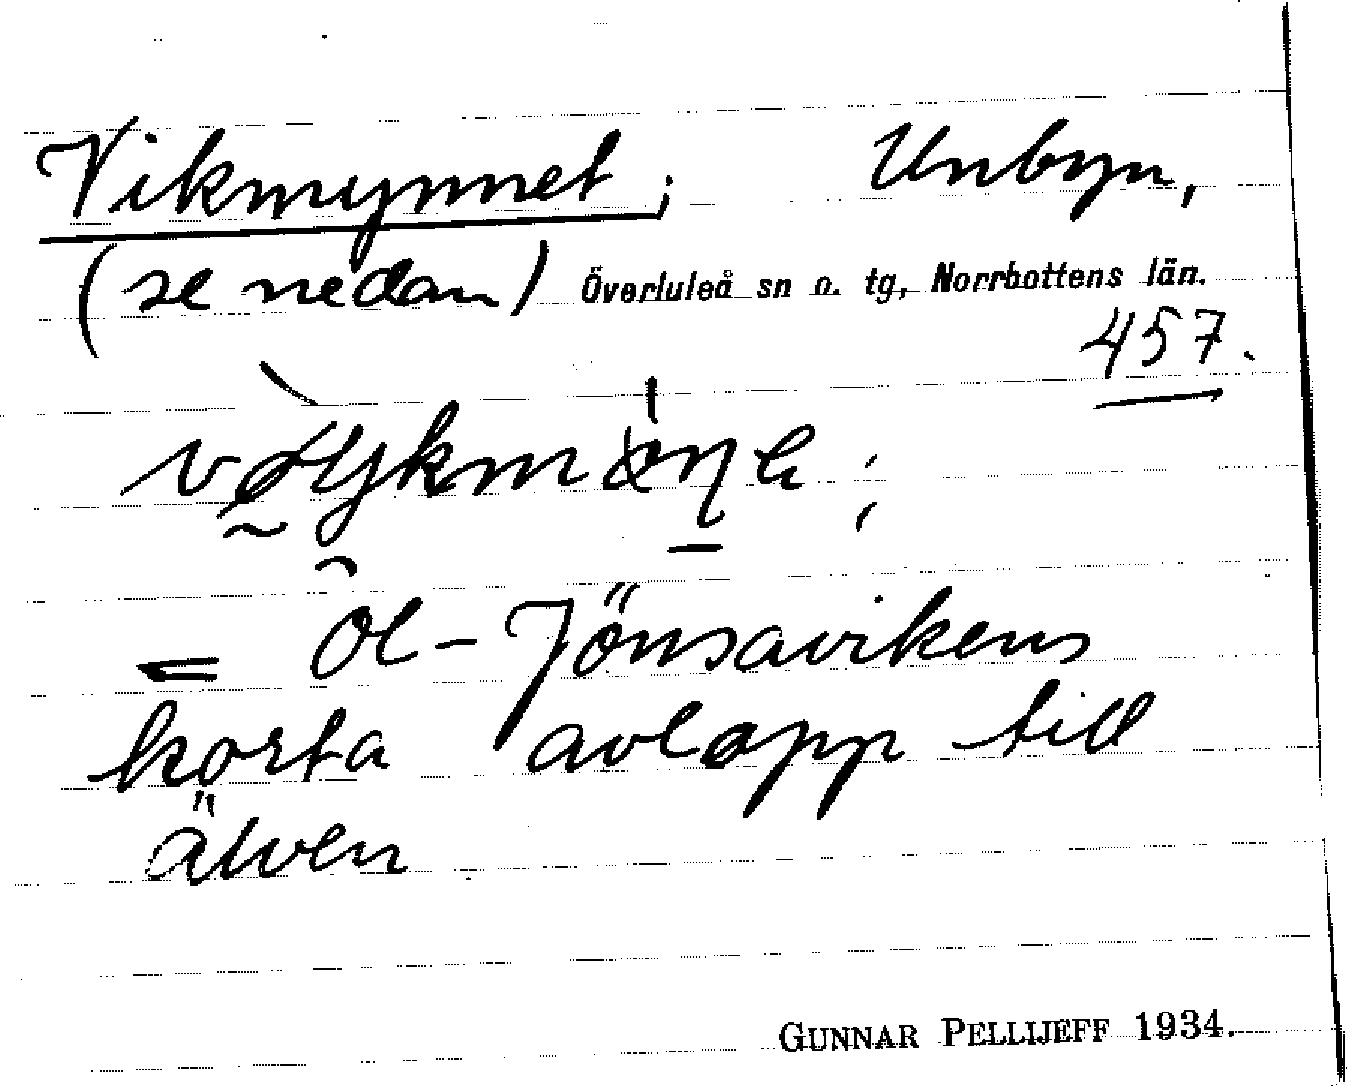 Vikmynnet; Unbyn,
(se nedan) Överluleå sn o. tg, Norrbottens län.
457.
= Ol-Jönsavikens
korta avlopp till
älven
GUNNAR PELLIJEFF 1934.